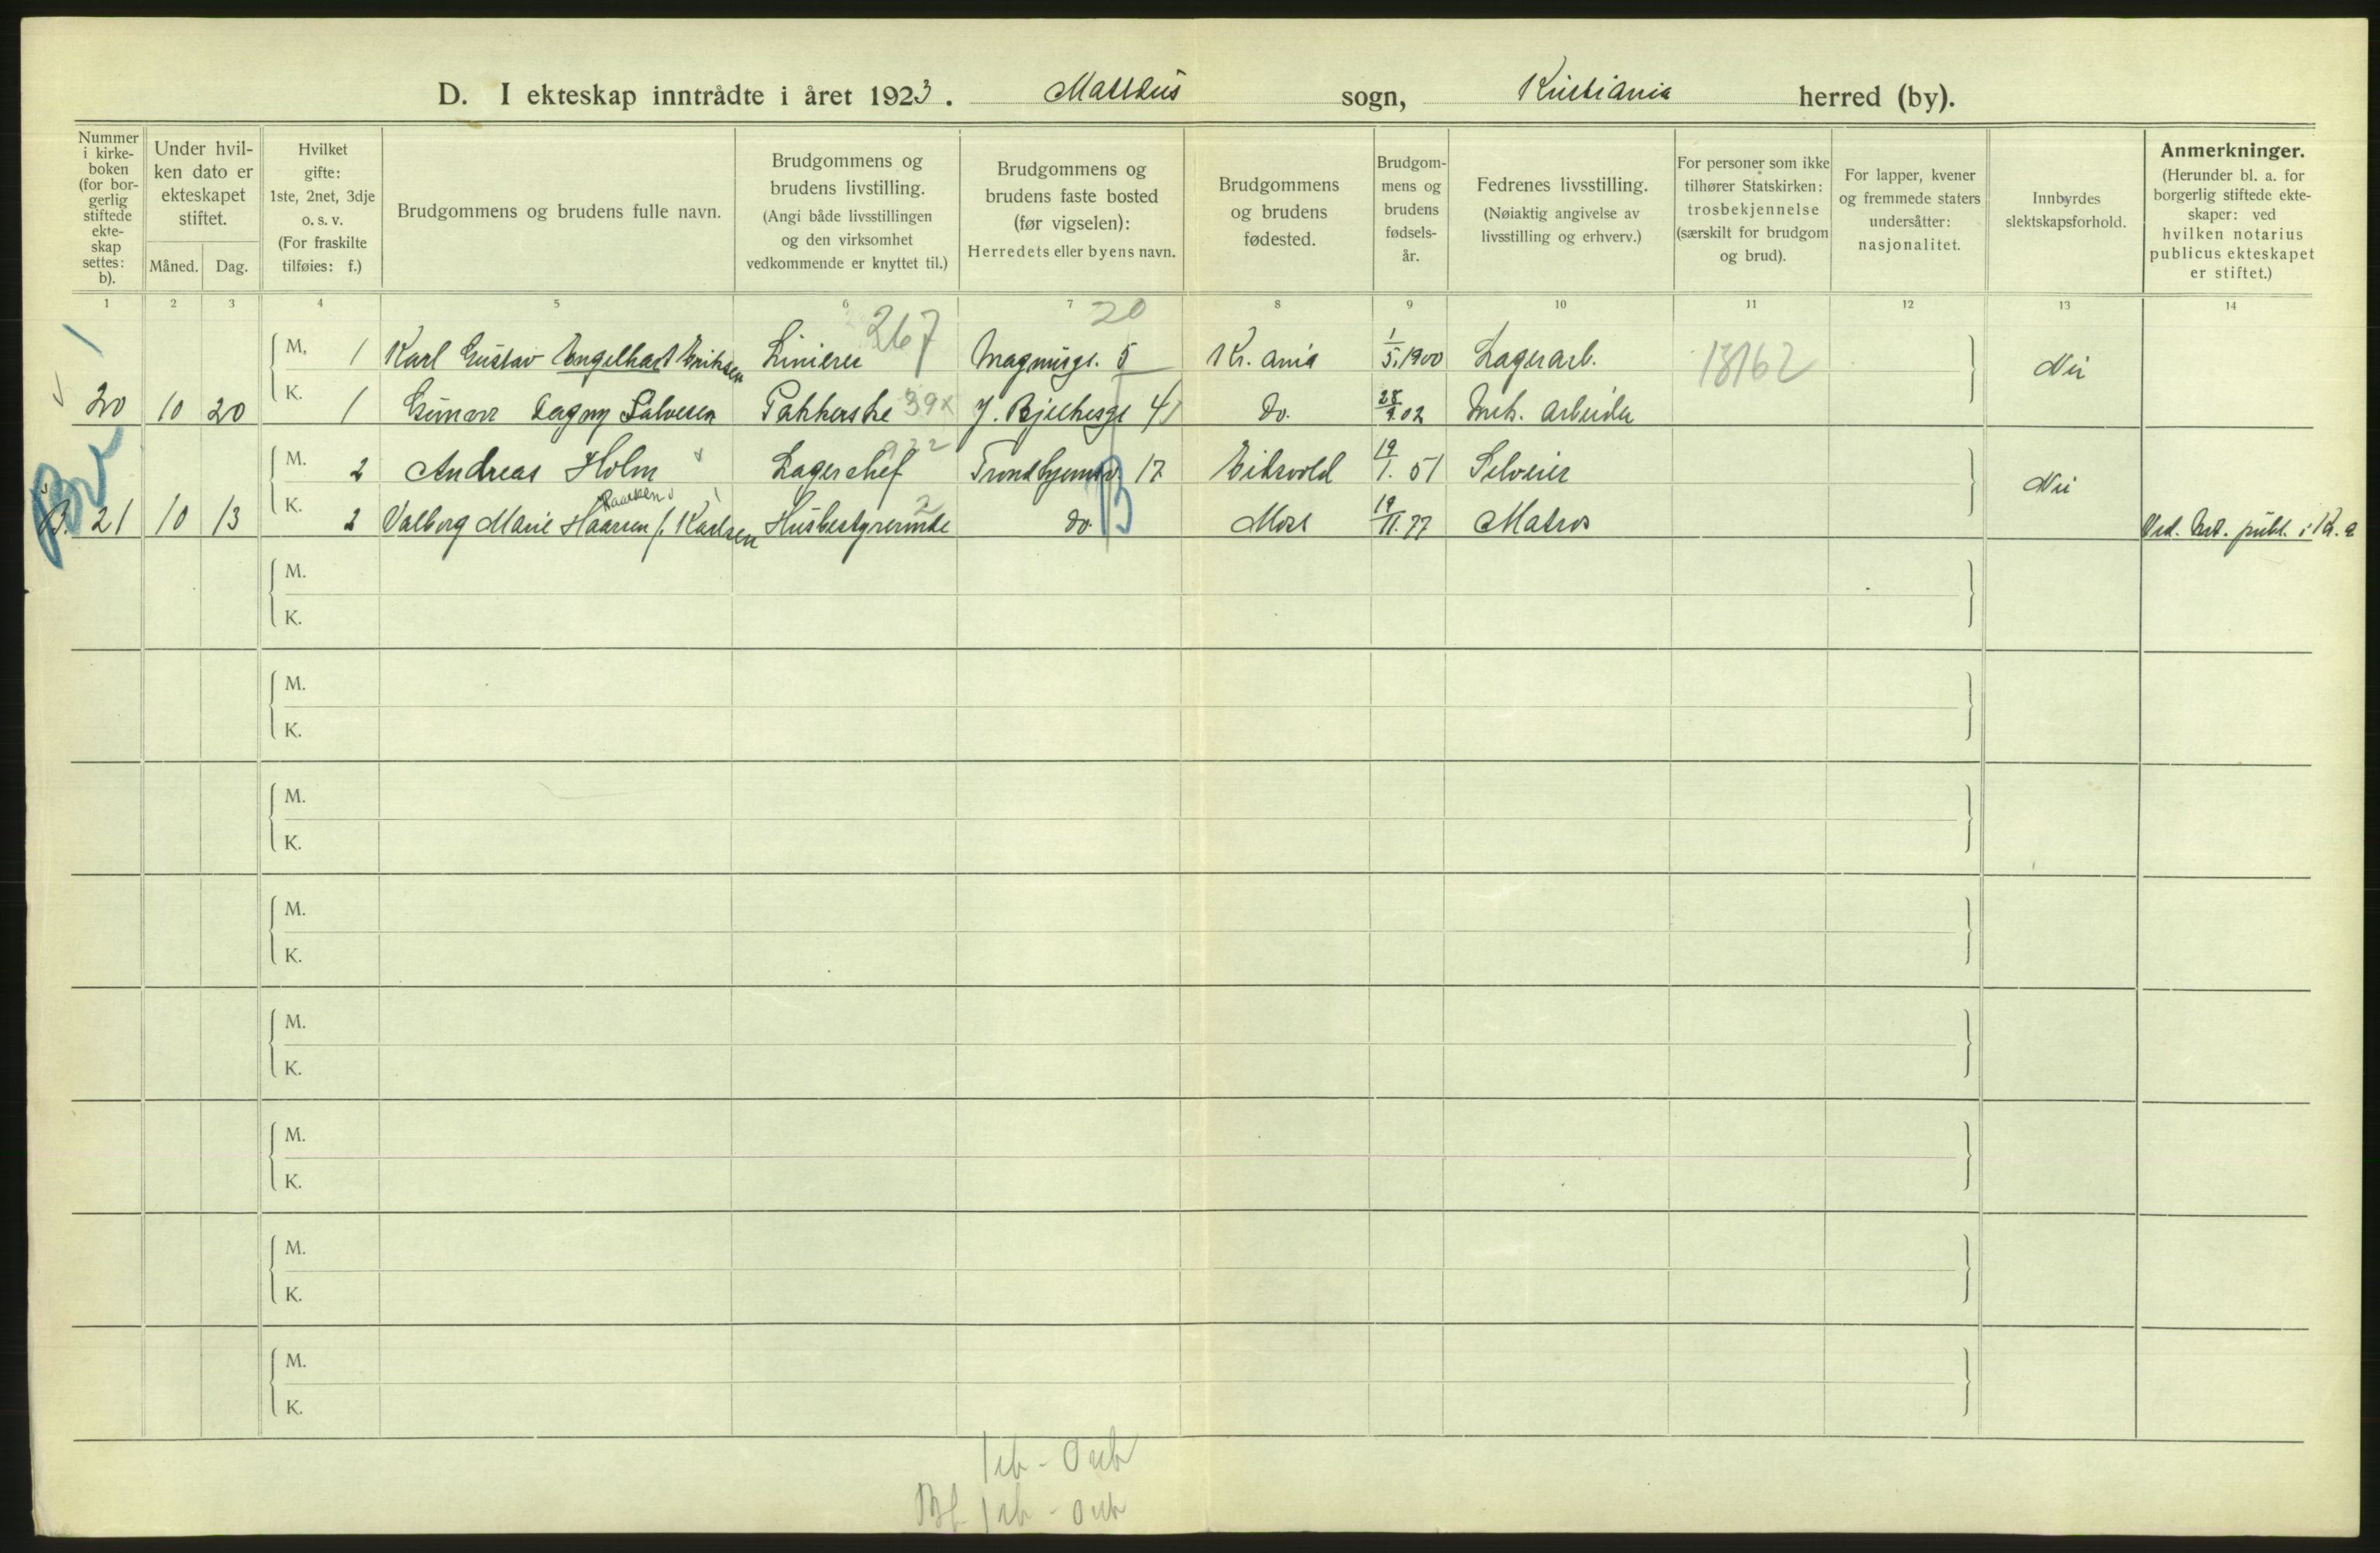 D. I ekteskap inntrådte i året 1923. Matteus sogn, Kristiania herred (by).
Nummer i kirke-boken (for bor-gerlig stiftede ekte-skap settes: b).
Under hvil-ken dato er ekteskapet stiftet.
Måned. Dag.
Hvilket gifte: 1ste, 2net, 3dje o. s. v. (For fraskilte tilføies: f.)
Brudgommens og brudens fulle navn.
Brudgommens og brudens livstilling. (Angi både livsstillingen og den virksomhet vedkommende er knyttet til.)
Brudgommens og brudens faste bosted (før vigselen): Herredets eller byens navn.
Brudgommens og brudens fødested.
Brudgom-mens og brudens fødsels-år.
Fedrenes livsstilling. (Nøiaktig angivelse av livsstilling og erhverv.)
For personer som ikke tilhører Statskirken: trosbekjennelse (særskilt for brudgom og brud).
For lapper, kvener og fremmede staters undersåtter: nasjonalitet.
Innbyrdes slektskapsforhold.
Anmerkninger. (Herunder bl. a. for borgerlig stiftede ekte-skaper: ved hvilken notarius publicus ekteskapet er stiftet.)
1 2 3 4 5 6 7 8 9 10 11 12 13 14
267 20
M. 1 Karl Gustav Engelhart Eriksen Linierer Magnusgt. 5 Kr.ania 1/5.1900 Lagerarb. 13162 Nei
20 10 20 K. 1 Dagny Salvesen Pakkerske 39x J. Bjelkesgt 41 do. 28/9.02 Mek. arbeider
M. 2 Andreas Holm Lagerchef 932 Trondhjemsv 17 Eidsvold 19/1.51 Selveier Nei
Paulsen
B. 21 10 13 K. 2 Valborg Marie Haarsen f. Karlsen Husbestyrerinde 2 do. B Moss 19/11.77 Matros Ved. Not. publ. i Kr.a
M.
K.
M.
K.
M.
K.
M.
K.
M.
K.
M.
K.
M.
K.
M.
K.